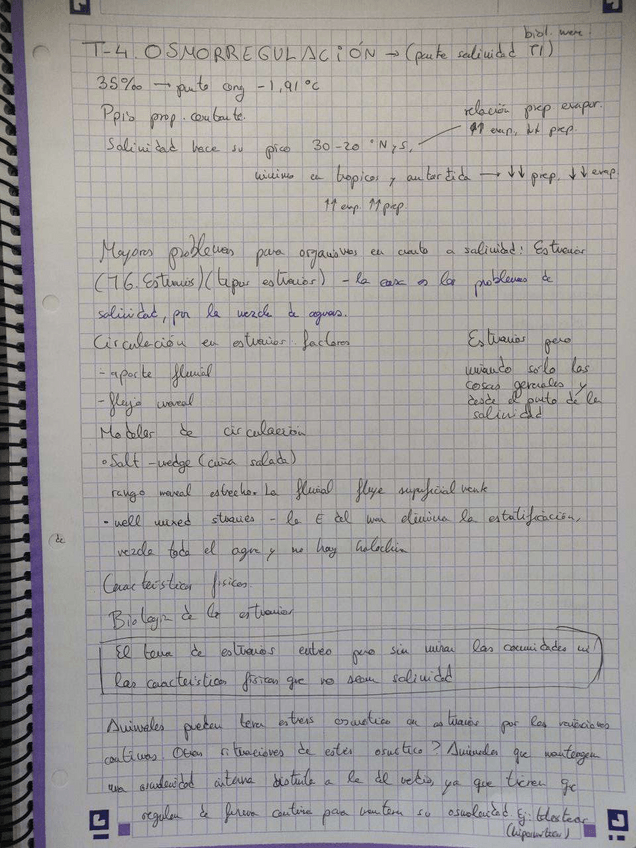 biol. mar.
T-4. OSMORREGULACIÓN → (parte salinidad T1)
35‰ → punto cong -1,91 °C
Ppio prop. constante.
relación prep evapor.
↑↑ evap, ↓↓ prep.
Salinidad hace su pico 30-20 °N y S,
mínimo en trópicos y antártida → ↓↓ prep, ↓↓ evap
↑↑ evap ↑↑ prep
Mayores problemas para organismos en cuanto a salinidad: Estuarios
(T6. Estuarios) (tipos estuarios) - la causa es los problemas de
salinidad, por la mezcla de aguas.
Circulación en estuarios. factores
- aporte fluvial
- flujo mareal
Estuarios pero
mirando solo las
cosas generales y
desde el punto de la
salinidad
Modelos de circulación
• Salt-wedge (cuña salada)
rango mareal estrecho. La fluvial fluye superficialmente
• well mixed - la E del mar elimina la estratificación,
mezcla toda el agua y no hay haloclina
Características físicas
Biología de los estuarios
El tema de estuarios entero pero sin mirar las comunidades ni
las características físicas que no sean salinidad
Animales pueden tener estrés osmótico en estuarios por las variaciones
continuas. Otras situaciones de estrés osmótico? Animales que mantengan
una osmolaridad interna distinta a la del medio, ya que tienen que
regular de forma continua para mantener su osmolaridad. Ej: teleósteos